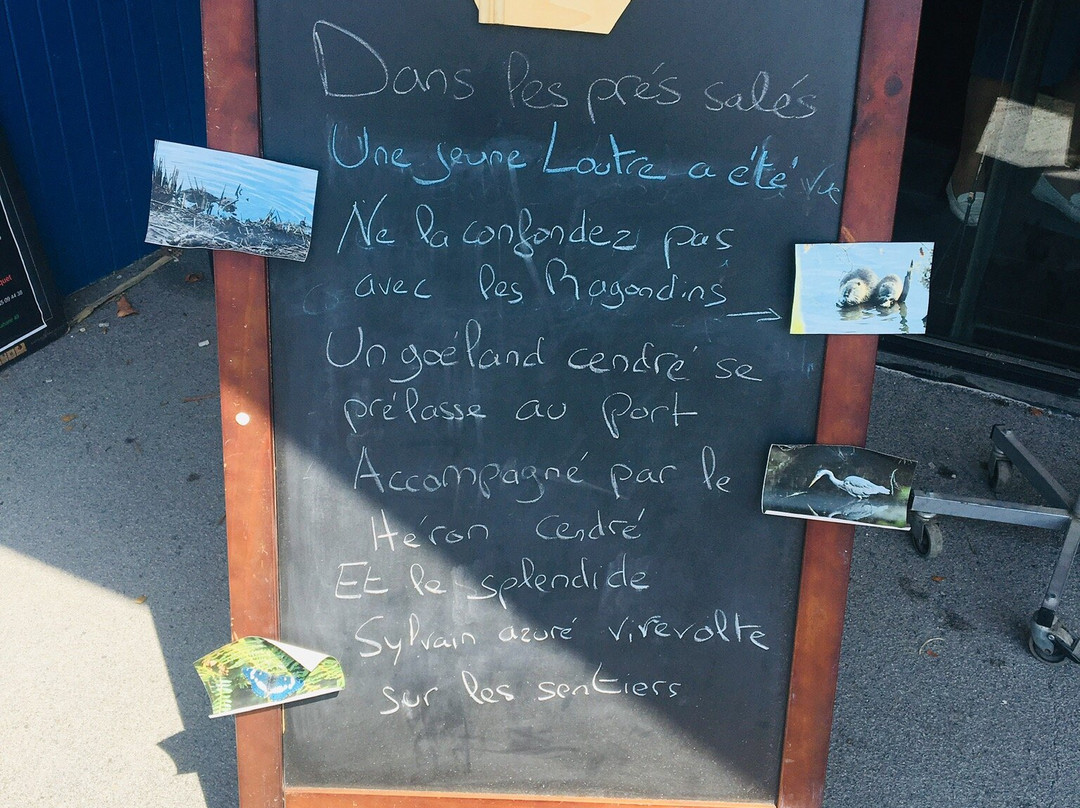 Dans les prés salés
Une jeune Loutre a été vue
Ne la confondez pas
avec les Ragondins
Un goéland cendré se
prélasse au port
Accompagné par le
Héron Cendré
Et le splendide
Sylvain azuré virevolte
sur les sentiers